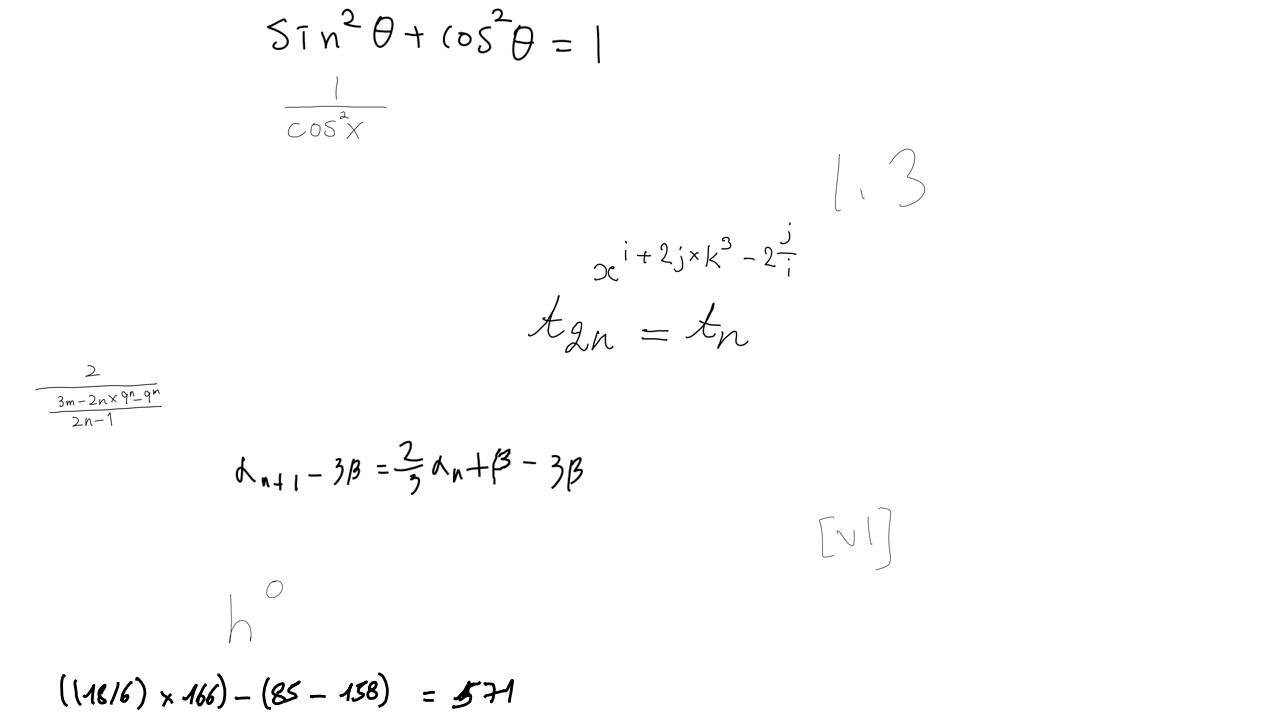 sin²θ + cos²θ = 1
\frac{1}{cos²x}
1.3
x^{i+2j×k^3-2\frac{j}{i}}
t_{2n} = t_n
\frac{2}{\frac{3m-2n×9^n-9^m}{2n-1}}
α_{n+1} - 3β = \frac{2}{3}α_n + β - 3β
[v1]
h^0
((18/6) × 166) - (85 - 158) = 571